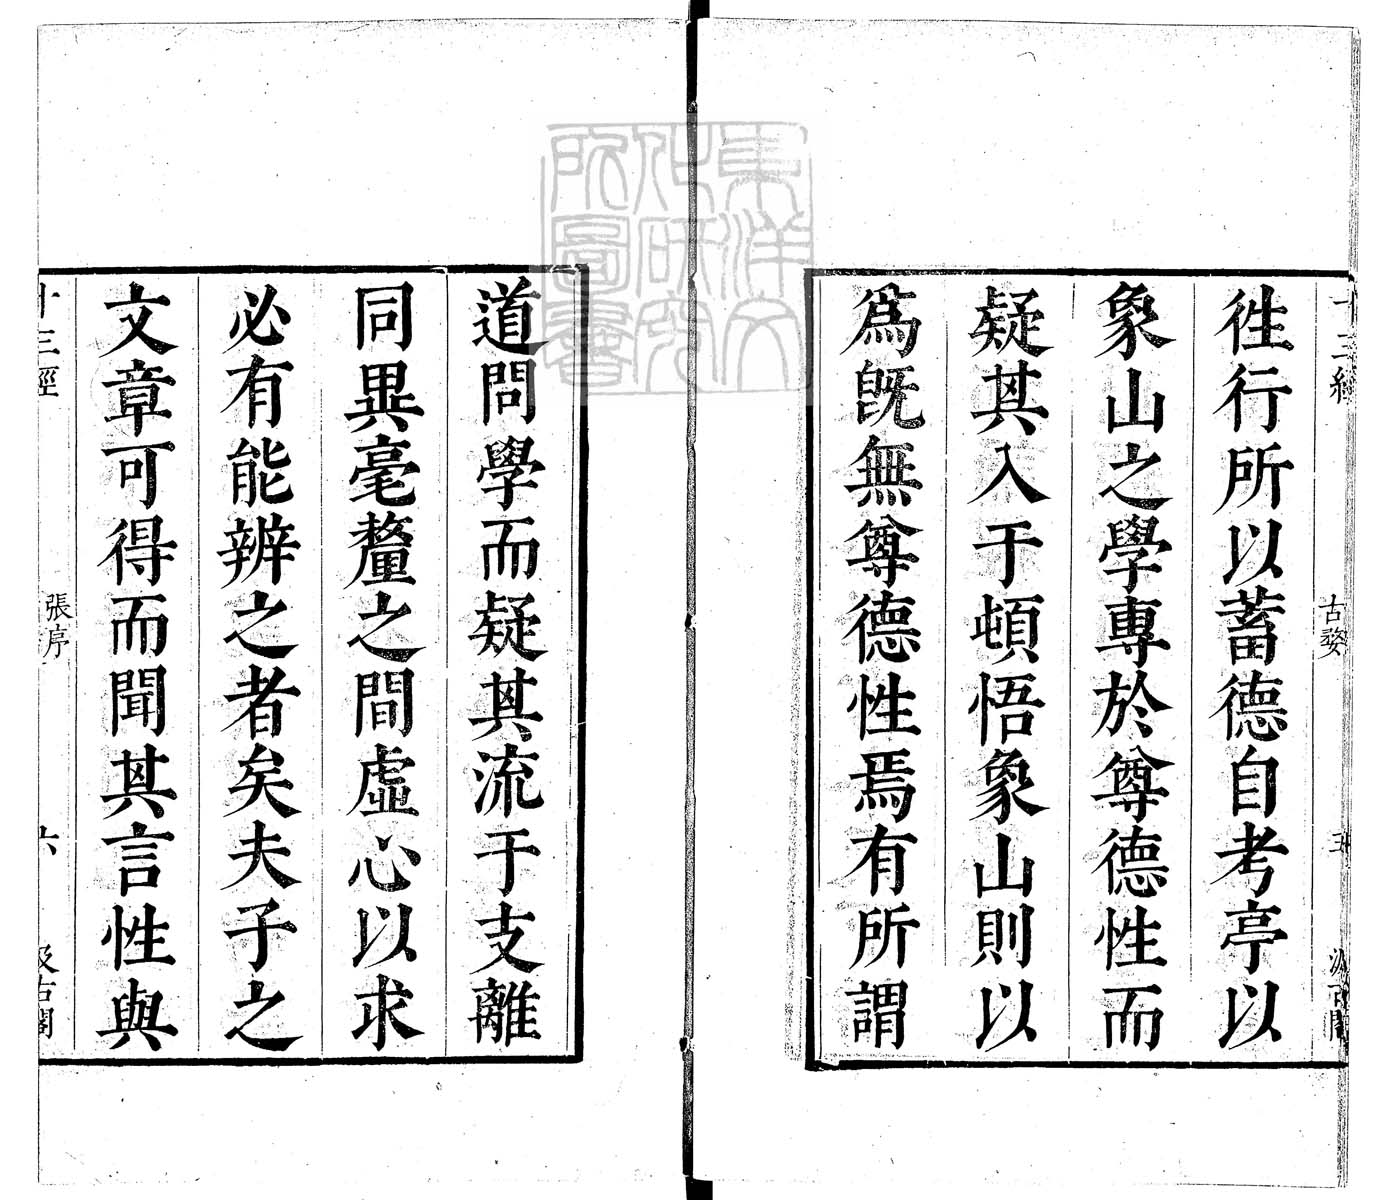 十三經
古婺
五
汲古閣
徃行所以蓄德自考亭以
象山之學專於尊德性而
疑其入于頓悟象山則以
爲既無尊德性焉有所謂
道問學而疑其流于支離
同異毫釐之間虛心以求
必有能辨之者矣夫子之
文章可得而聞其言性與
十三經
張序
六
汲古閣
東洋文
化研究
所圖書